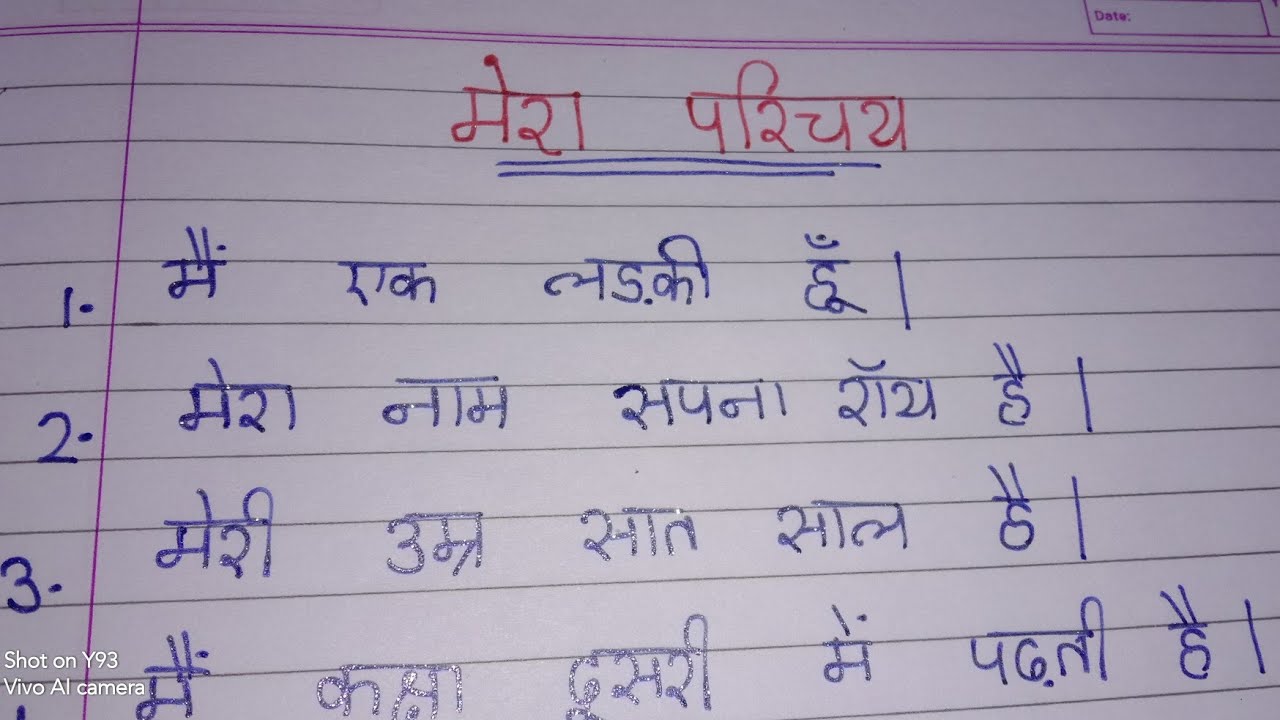 Date:
मेरा परिचय
1. मैं एक लड़की हूँ।
2. मेरा नाम सपना रॉय है।
3. मेरी उम्र सात साल है।
मैं कक्षा दूसरी में पढ़ती है।
Shot on Y93
Vivo AI camera